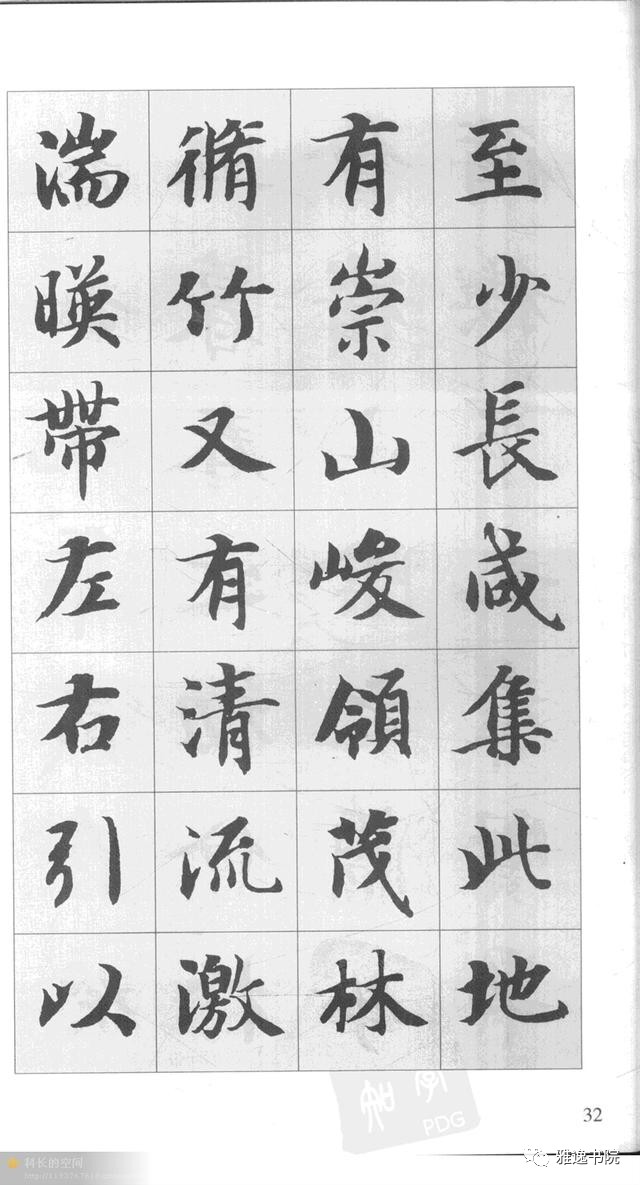 至少長咸集此地
有崇山峻領茂林
脩竹又有清流激
湍暎帶左右引以
32
知学
PDG
科长的空间
雅逸书院